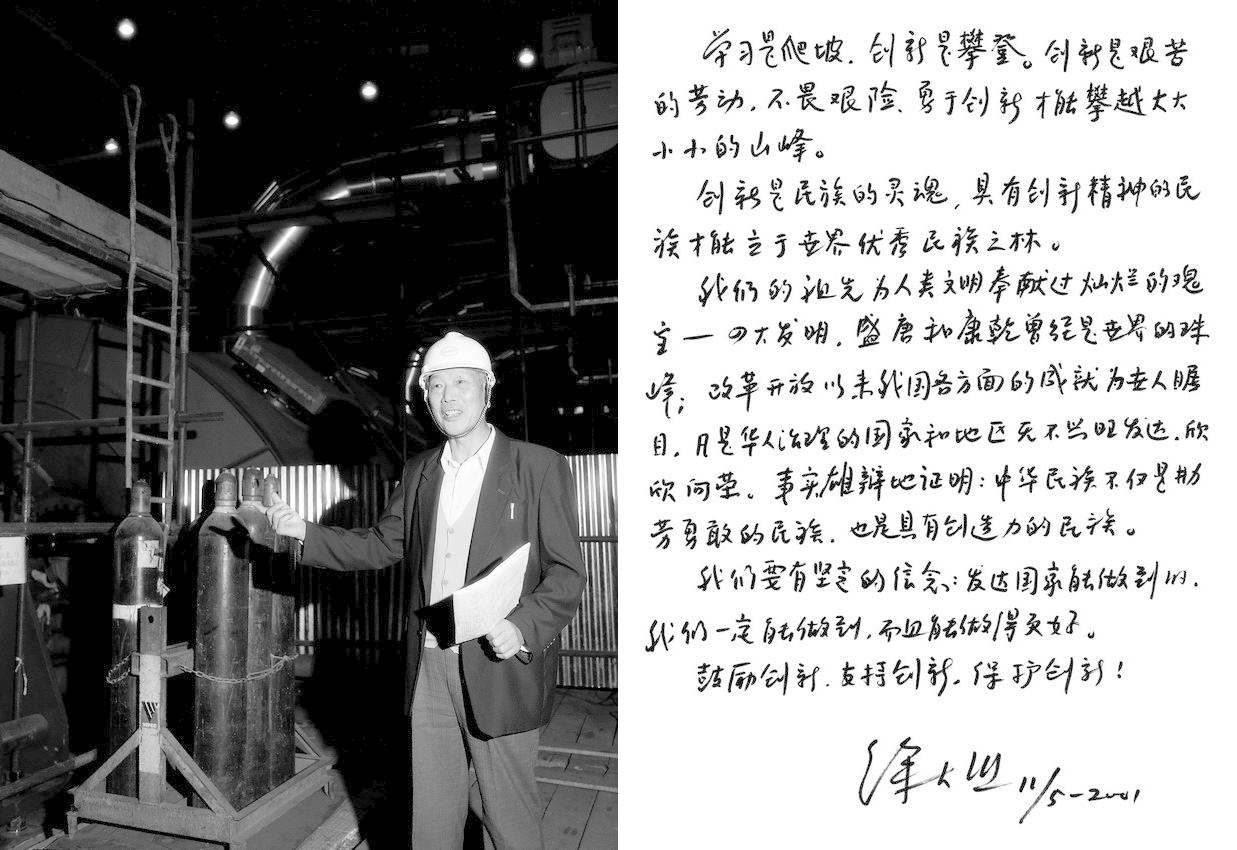 学习是爬坡，创新是攀登。创新是艰苦
的劳动，不畏艰险、勇于创新才能攀越大大
小小的山峰。
创新是民族的灵魂，具有创新精神的民
族才能立于世界优秀民族之林。
我们的祖先为人类文明奉献过灿烂的瑰
宝—四大发明，盛唐和康乾曾经是世界的珠
峰；改革开放以来我国各方面的成就为世人瞩
目，凡是华人治理的国家和地区无不兴旺发达，欣
欣向荣。事实雄辩地证明：中华民族不仅是勤
劳勇敢的民族，也是具有创造力的民族。
我们要有坚定的信念：发达国家能做到的，
我们一定能做到，而且能做得更好。
鼓励创新，支持创新，保护创新！
徐大懋 11/5-2001